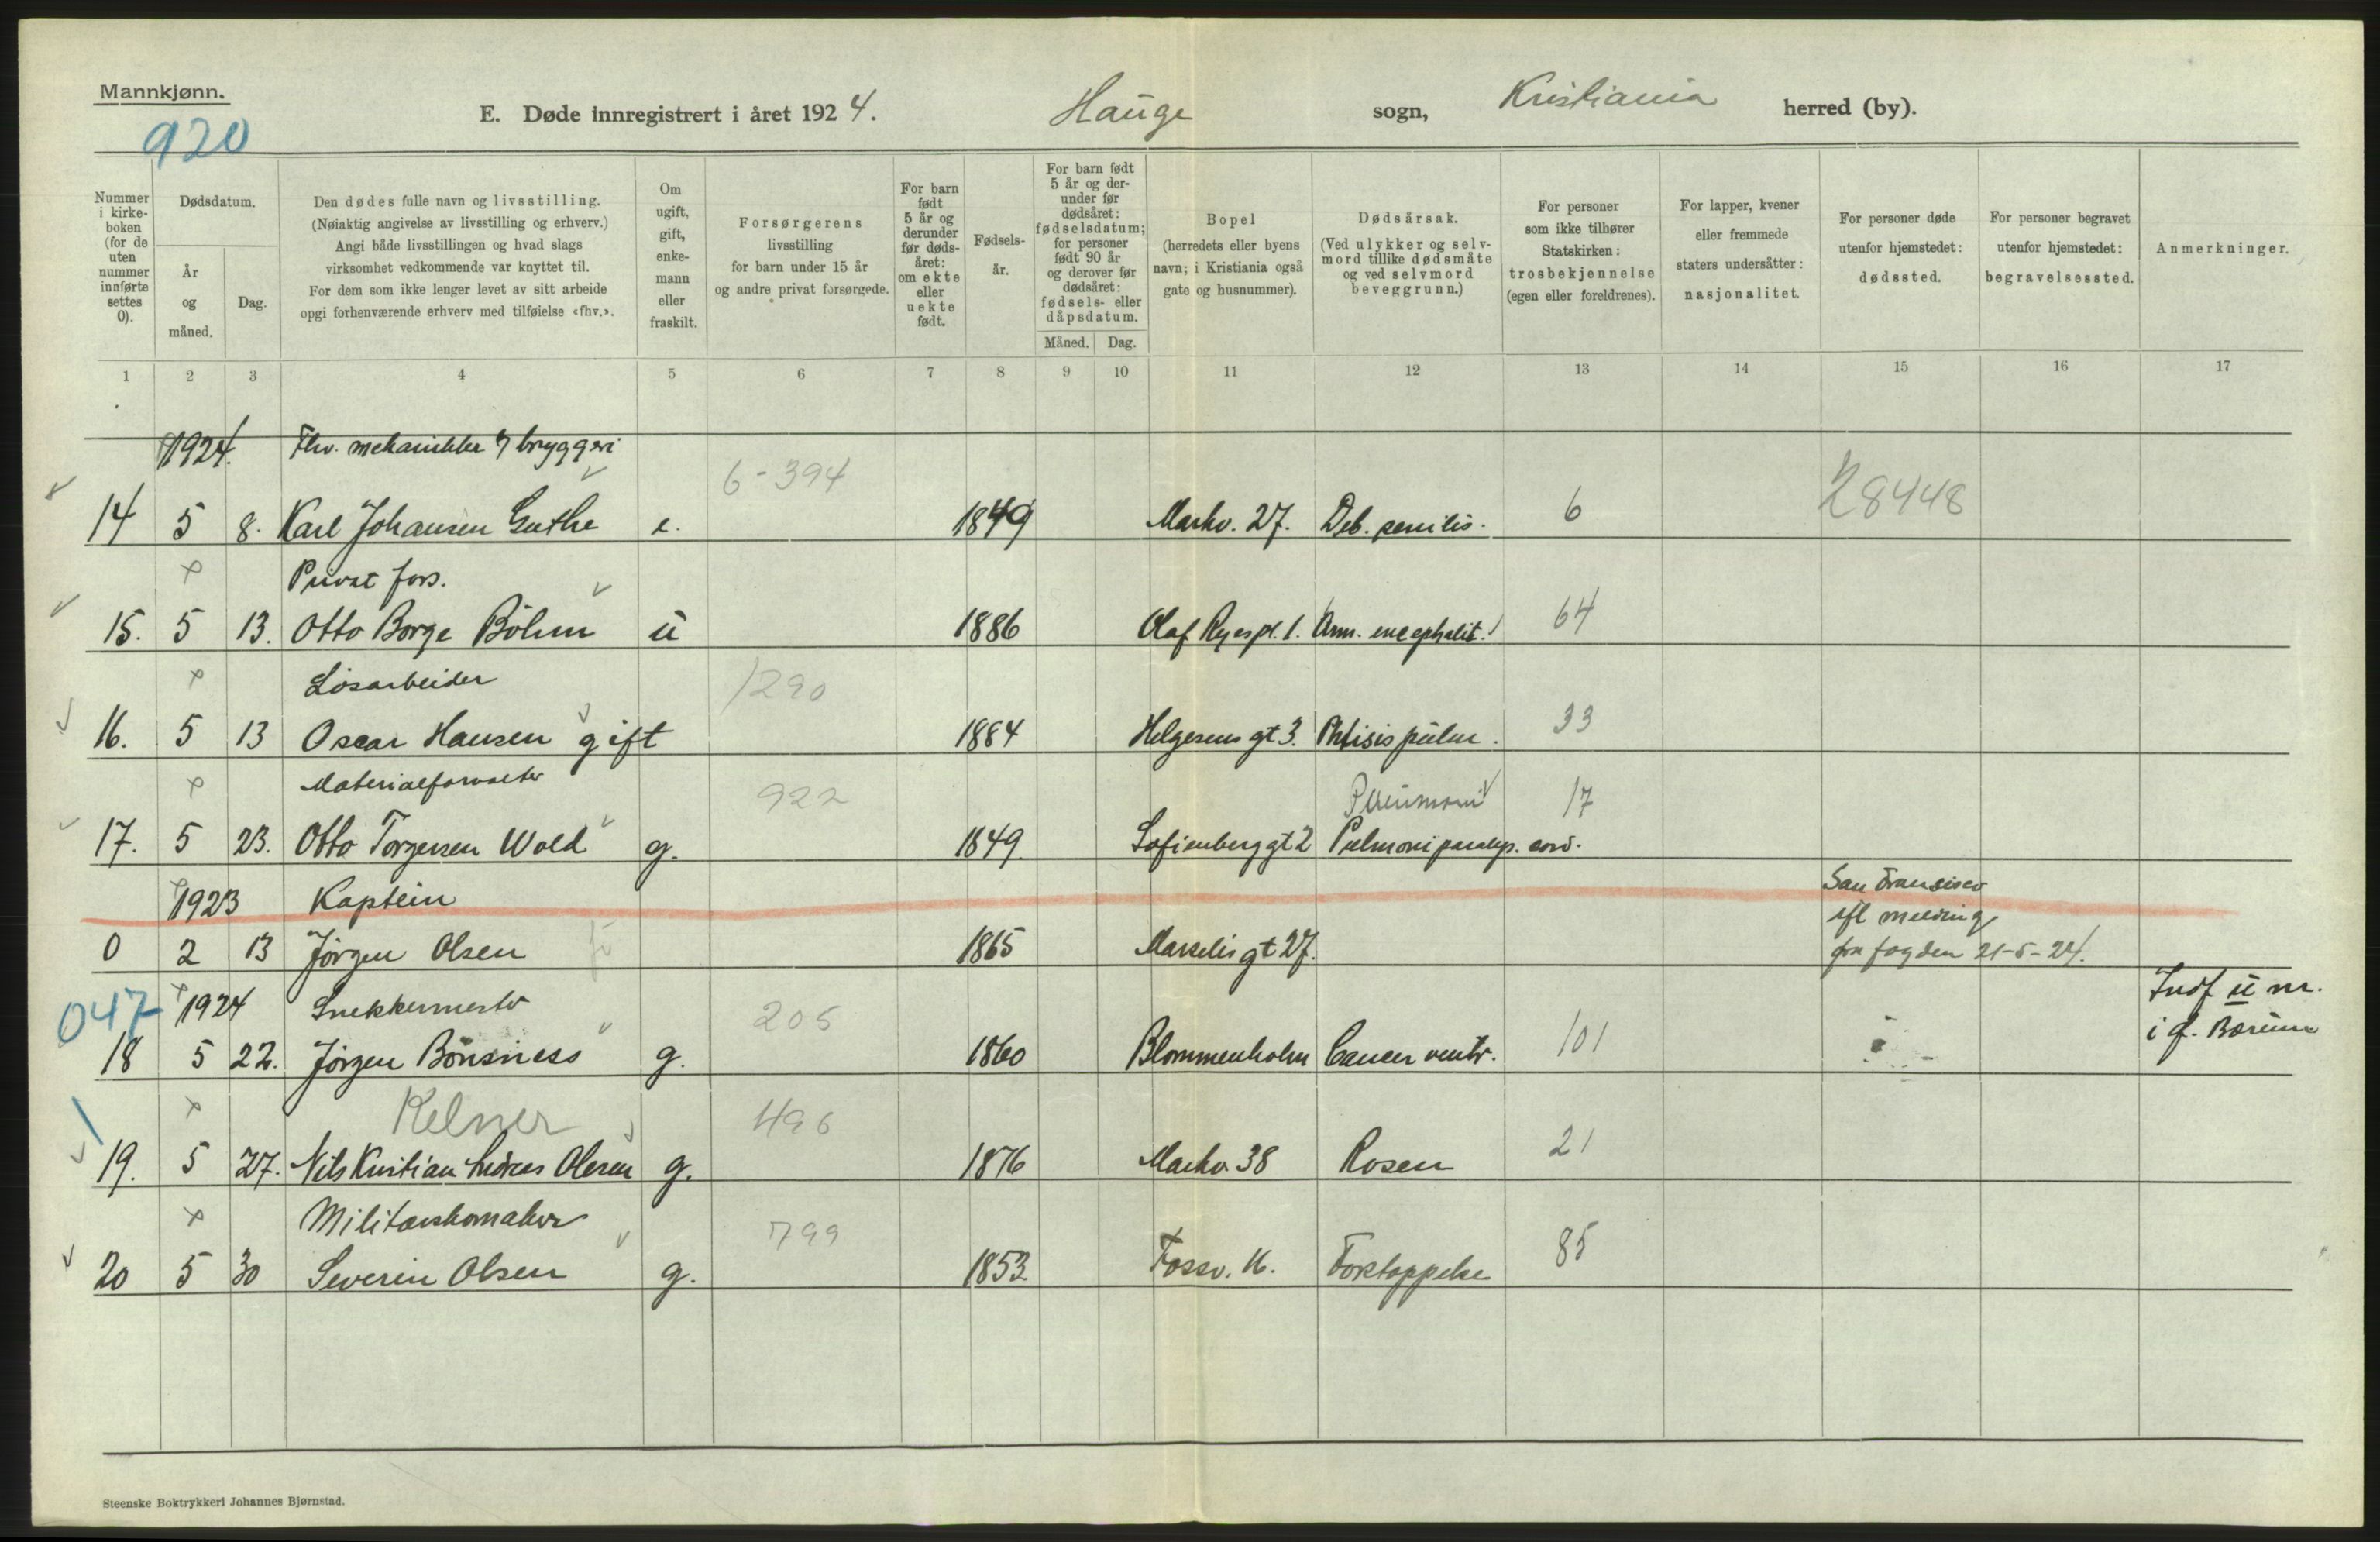 Mannkjønn.
920
E. Døde innregistrert i året 1924. Hauge sogn, Kristiania herred (by).
Nummer i kirke-boken (for de uten nummer innførte settes 0).
Dødsdatum.
År og måned.
Dag.
Den dødes fulle navn og livsstilling.
(Nøiaktig angivelse av livsstilling og erhverv.)
Angi både livsstillingen og hvad slags
virksomhet vedkommende var knyttet til.
For dem som ikke lenger levet av sitt arbeide
opgi forhenværende erhverv med tilføielse «fhv.».
Om ugift, gift, enke-mann eller fraskilt.
Forsørgerens
livsstilling
for barn under 15 år
og andre privat forsørgede.
For barn født 5 år og derunder før døds-året: om ekte eller uekte født.
Fødsels-år.
For barn født 5 år og der-under før dødsåret: fødselsdatum; for personer født 90 år og derover før dødsåret: fødsels- eller dåpsdatum.
Måned. Dag.
Bopel
(herredets eller byens
navn; i Kristiania også
gate og husnummer).
Dødsårsak.
(Ved ulykker og selv-
mord tillike dødsmåte
og ved selvmord
beveggrunn.)
For personer
som ikke tilhører
Statskirken:
trosbekjennelse
(egen eller foreldrenes).
For lapper, kvener
eller fremmede
staters undersåtter:
nasjonalitet.
For personer døde
utenfor hjemstedet:
dødssted.
For personer begravet
utenfor hjemstedet:
begravelsessted.
Anmerkninger.
1 2 3 4 5 6 7 8 9 10 11 12 13 14 15 16 17
1924. Fhv. mekanikker v/ bryggeri
6-394 28448
14 5 8. Karl Johansen Guthe e. 1849 Markv. 27. Deb. senilis. 6
Privat fors.
15. 5 13. Otto Borge Böhm u 1886 Olaf Ryespl. 1. encephalit. 64
Løsarbeider 1290
16. 5 13 Oscar Hansen gift 1884 Helgesens gt 3. Phtisis pulm. 33
Materialforvalter 922 Pneumoni 17
17. 5 23. Otto Torgersen Wold g. 1849. Sofienberg gt 2 Pulmoni paralys. cord.
1923 Kaptein San Fransisco
efl melding
0 2 13 Jörgen Olsen 1865 Markelis gt 27. fra fogden 21-5-24.
047 1924 Snekkermester 205 Indf u nr.
i Bærum
18 5 22. Jörgen Bönsness g. 1860 Blommenholm Cancer ventr. 101
Kelner 496
19. 5 27. Nils Kristian Andreas Olesen g. 1876 Markv. 38 Rosen 21
Militærskomaker 799
20 5 30 Severin Olsen g. 1853. Fossv. 16. Forstoppelse 85
Steenske Boktrykkeri Johannes Bjørnstad.